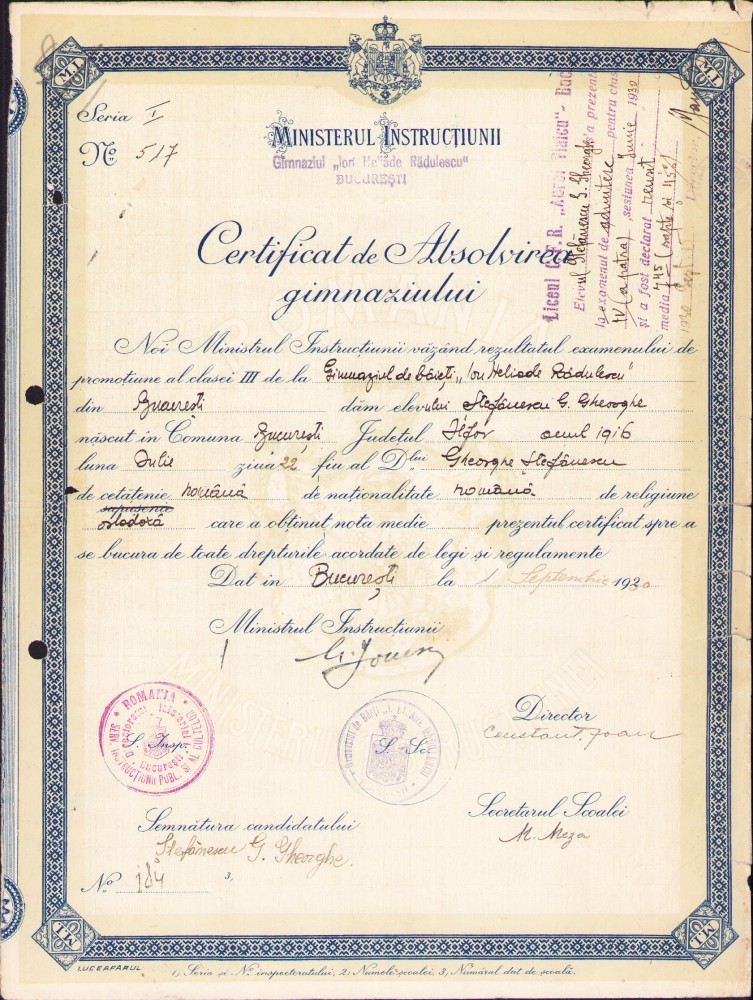 M.I.
M.I.
Seria I
No 517
MINISTERUL INSTRUCȚIUNII
Gimnaziul „Ion Heliade Rădulescu"
BUCUREȘTI
Liceul C.F.R. „Aurel Vlaicu" - Buc
Elevul Ștefănescu G. Gheorghe s'a prezent
la examenul de admitere pentru cl
IV (a patra), sesiunea Iunie 1930
și a fost declarat reușit
media 7,45 (șapte și 45%)
Certificat de Absolvirea
gimnaziului
Noi Ministrul Instrucțiunii văzând rezultatul examenului de
promoțiune al clasei III de la Gimnaziul de băieți „Ion Heliade Rădulescu"
din București dăm elevului Ștefănescu G. Gheorghe
născut in Comuna București Județul Ilfov anul 1916
luna Iulie ziua 22 fiu al Dlui Gheorghe Ștefănescu
de cetățenie română de naționalitate română de religiune
ortodoxă care a obținut nota medie prezentul certificat spre a
se bucura de toate drepturile acordate de legi și regulamente
Dat in București la 1 Septembrie 1930
Ministrul Instrucțiunii
ROMANIA
București
L. Insp.
L. Sc.
Director
Constant. Ioan
Semnătura candidatului
Ștefănescu G. Gheorghe.
Secretarul Școalei
M. Meza
No 184 3,
M.I.
M.I.
LUCEAFARUL
1, Seria și No inspectoratului; 2, Numele școalei; 3, Numărul dat de școală.